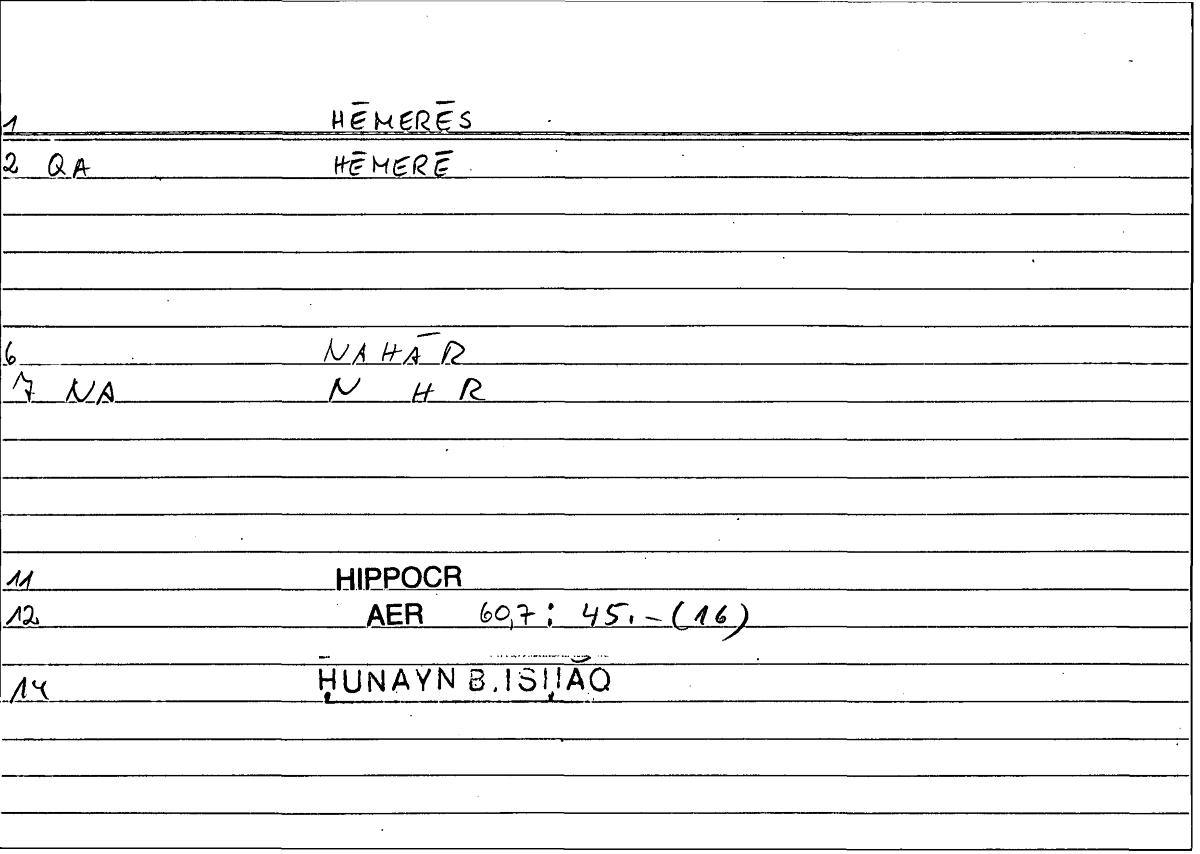 1 HĒMERĒS
2 QA HĒMERĒ
6 NAHĀR
7 NA N H R
11 HIPPOCR
12 AER 60,7: 45.-(16)
14 ḤUNAYN B. ISḤĀQ